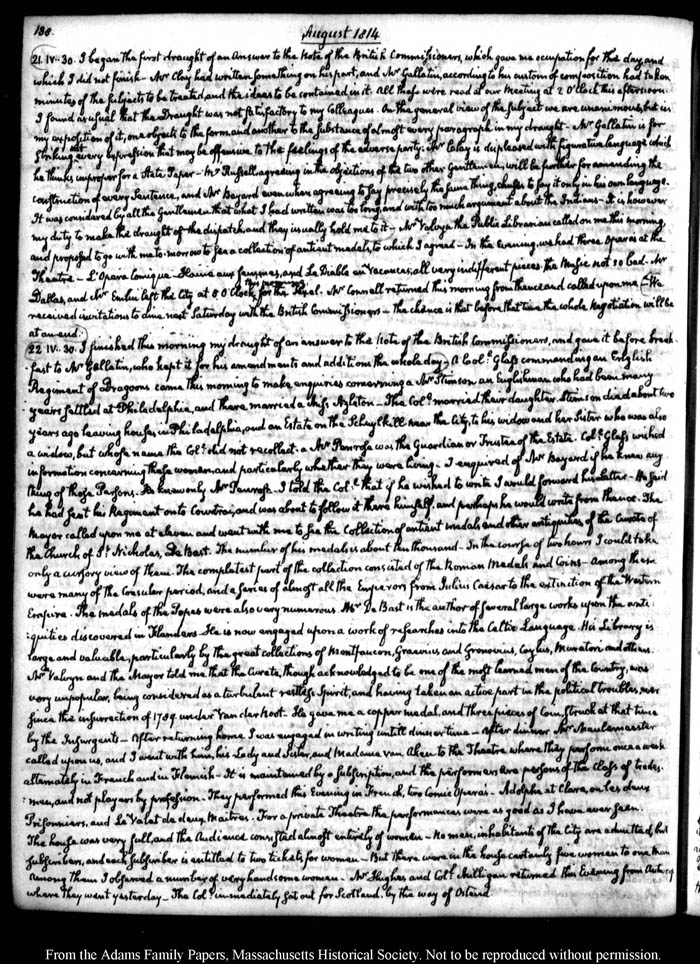 130.
August 1814
21. IV:30. I began the first draught of an Answer to the Note of the British Commissioners, which gave me occupation for the day, and
which I did not finish — Mr Clay had written something on his part, and Mr Gallatin, according to his custom of composition had taken
minutes of the subjects to be treated, and the ideas to be contained in it. All these were read at our Meeting at 2 O'Clock this afternoon.
I found as usual that the Draught was not satisfactory to my Colleagues. On the general view of the subject we are unanimous, but in
my exposition of it, one objects to the form, and another to the substance of almost every paragraph in my draught — Mr Gallatin is for
striking out every expression that may be offensive to the feelings of the adverse party. Mr Clay is displeased with figurative language which
he thinks improper for a State Paper — Mr Russell agreeing in the objections of the two other Gentlemen, will be further for amending the
construction of every Sentence, and Mr Bayard even when agreeing to say precisely the same thing, chuses to say it only in his own language.
It was considered by all the Gentlemen that what I had written was too long, and with too much argument about the Indians — It is however
my duty to make the draught of the dispatch, and they usually hold me to it — Mr Valwyn the Public Librarian called on me this morning,
and proposed to go with me to-morrow to see a collection of antient medals, to which I agreed — In the Evening, we had three Operas at the
Theatre — L'Opera Comique — Maris aux femmes, and Le Diable en Vacances; all very indifferent pieces the Music not so bad. Mr
Dallas, and Mr Emlen left the City at 8 O'Clock for the Texel. Mr Connell returned this morning from thence and called upon me — We
received invitations to dine next Saturday with the British Commissioners — The chance is that before that time the whole Negotiation will be
at an end.
22. IV:30. I finished this morning my draught of an answer to the Note of the British Commissioners, and gave it before break-
fast to Mr Gallatin, who kept it for his amendments and additions the whole day — A Coll: Glass commanding an English
Regiment of Dragoons came this morning to make enquiries concerning a Mr Stimson an Englishman who had been many
years settled at Philadelphia, and there married a Miss — The Coll: married their daughter. Stimson died about two
years ago leaving houses in Philadelphia, and an Estate on the Schuylkill near the City, to his widow and her Sister who was also
a widow, but whose name the Coll: did not recollect. a Mr Penrose was the Guardian or Trustee of the Estate. Coll: Glass wished
information concerning these women, and particularly whether they were living. I enquired of Mr Bayard if he knew any
thing of those Persons. He knew only Mr Penrose. I told the Coll: that if he wished to write I would forward his letter. He said
he had sent his Regiment on to Courtrai, and was about to follow it there himself, and perhaps he would write from thence. The
Mayor called upon me at eleven and went with me to see the Collection of antient medals and other antiquities of the Curate of
the Church of St. Nicholas, De Bast. The number of his medals is about ten thousand. In the course of two hours I could take
only a cursory view of them. The completest part of the collection consisted of the Roman Medals and Coins — Among them
were many of the Consular period, and a series of almost all the Emperors from Julius Caesar to the extinction of the Western
Empire. The medals of the Popes were also very numerous. Mr De Bast is the author of several large works upon the anti-
quities discovered in Flanders. He is now engaged upon a work of researches into the Celtic Language. His Library is
large and valuable, particularly by the great collections of Montfaucon, Graevius and Gronovius, Caylus, Muratori and others.
Mr Valwyn and the Mayor told me that the Curate, though acknowledged to be one of the most learned men of the Country, was
very unpopular, being considered as a turbulent restless Spirit, and having taken an active part in the political troubles, ever
since the insurrection of 1789 under Van der Noot. He gave me a copper medal, and three pieces of Coin, struck at that time
by the Insurgents — After returning home, I was engaged in writing untill dinner time — After dinner Mr Meulemeester
called upon us, and I went with him, his Lady and Sister, and Madame van Aken to the Theatre where they perform once a week
alternately in French and in Flemish — It is maintained by a subscription, and the performers are persons of the Class of trades-
men, and not players by profession. They performed this Evening in French, two Comic Operas — Adolphe et Clara, ou les deux
Prisonniers, and Le Valet de deux Maitres. For a private Theatre the performances were as good as I have ever seen.
The house was very full, and the Audience consisted almost entirely of women — No men, inhabitants of the City are admitted, but
subscribers, and each subscriber is entitled to two tickets for women — But there were in the house certainly five women to one man
Among them I observed a number of very handsome women — Mr Hughes and Coll: Milligan returned this Evening from Antwerp
where they went yesterday — The Coll: immediately set out for Scotland, by the way of Ostend.
From the Adams Family Papers, Massachusetts Historical Society. Not to be reproduced without permission.